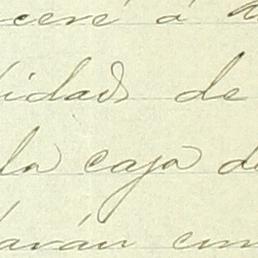 ceré á
idads de
la caja de
arán